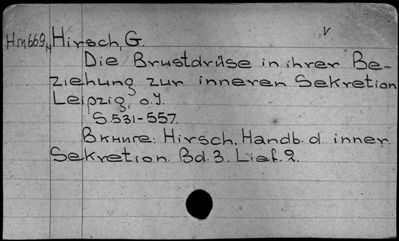 Hm669н Hirsch, G. v
Die Brustdrüse in ihrer Be-
ziehung zur inneren Sekretion
Leipzig, o.J.
S. 531-557.
В книге: Hirsch. Handb. d. inner.
Sekretion. Bd. 3. Lief. 2.